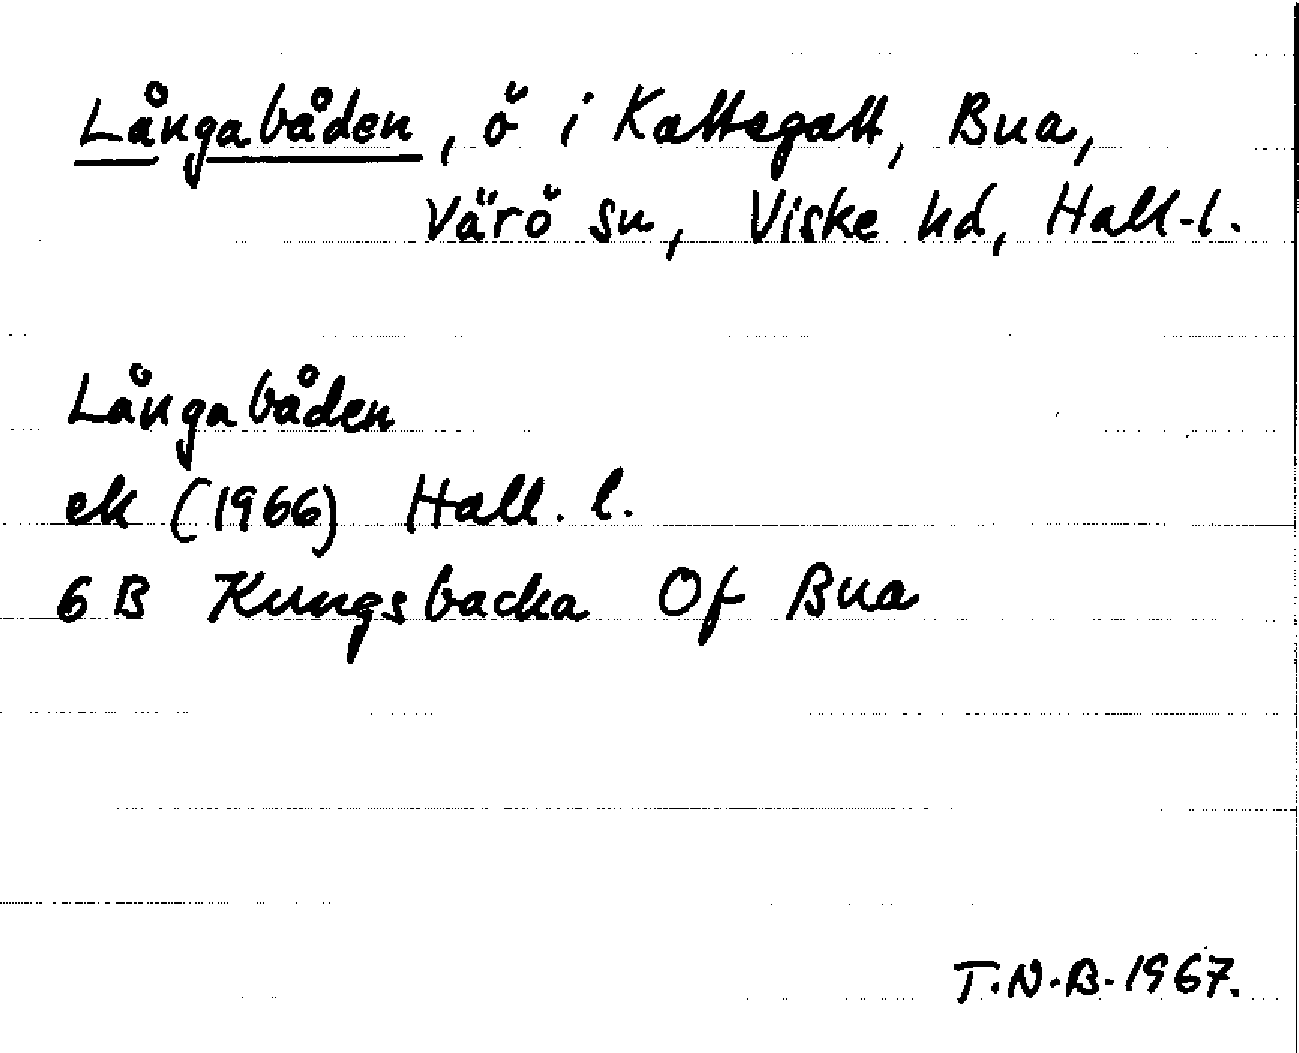 Långabåden, ö i Kattegatt, Bua,
Värö sn, Viske hd, Hall-l.
Långabåden
ek (1966) Hall. l.
6 B Kungsbacka Of Bua
T.N.B. 1967.